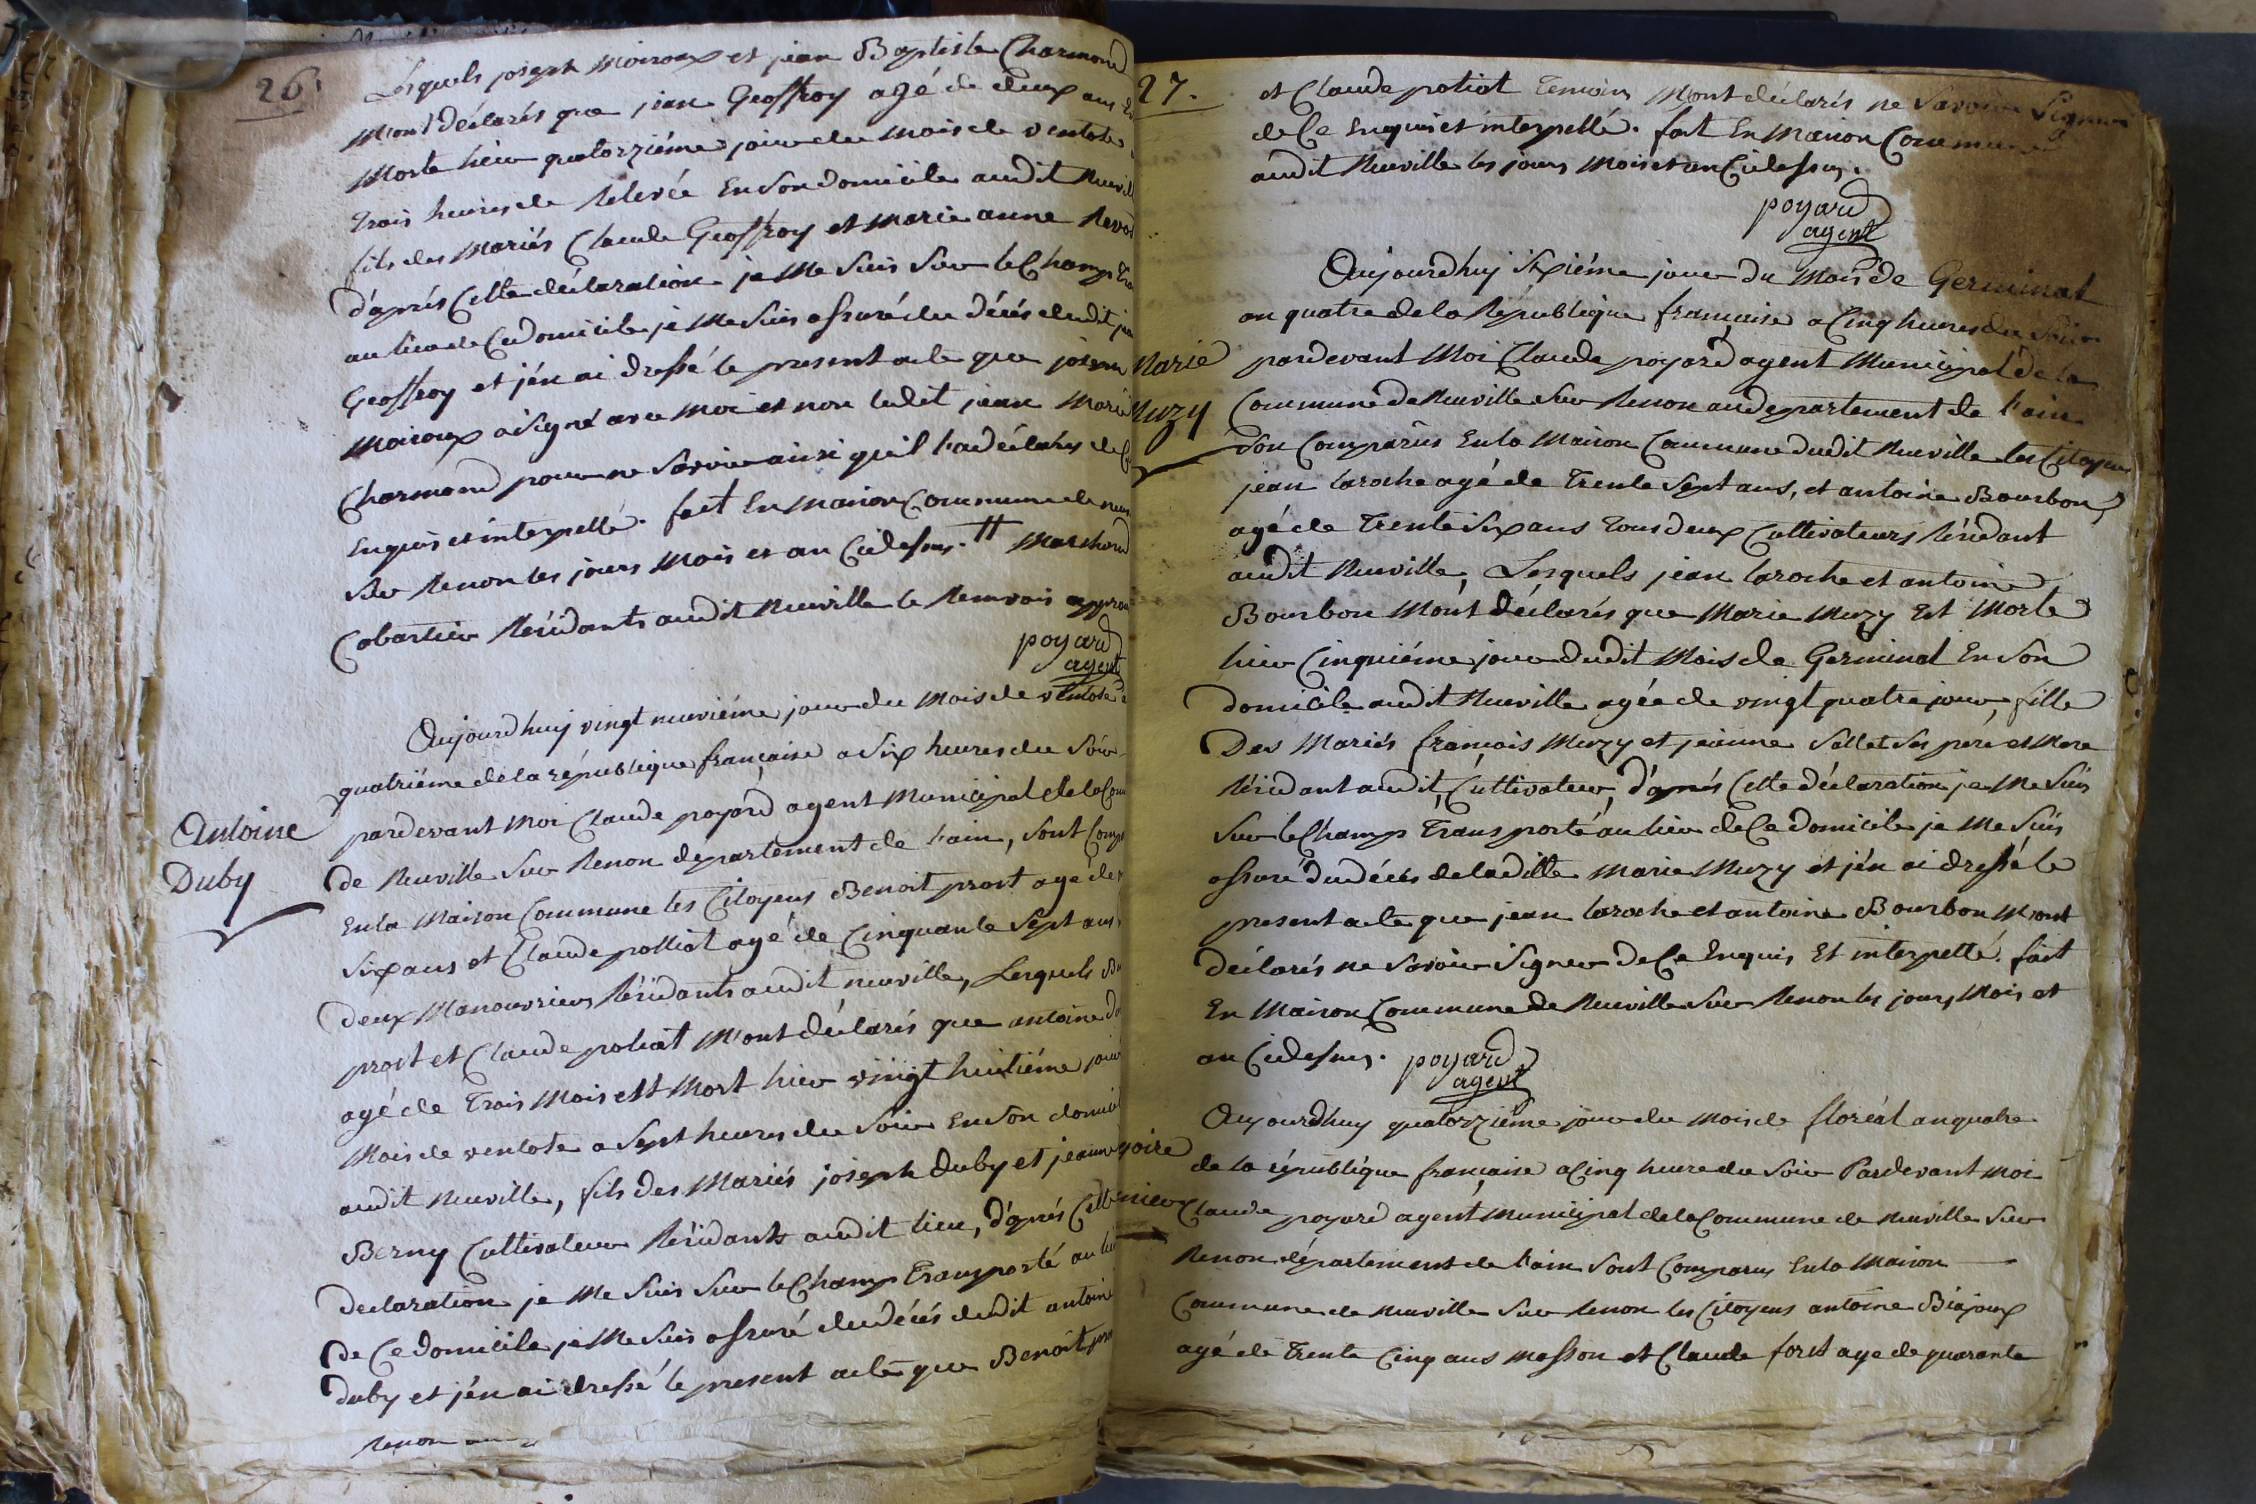 26.
Lesquels joseph Moiroux et jean Baptiste Charmond
M'ont déclarés que jean Geoffroy agé de deux ans Est
Morte hier quatorziéme jour du Mois de ventose
Trois heures de Relevée En Son domicile audit Neuvill
fils des Mariés Claude Geoffroy et Marie anne Revo
d'aprés Cette déclaration je Me Suis Sur le Champ Tra
au lieu de Ce domicile je Me Suis assuré du Décés dudit jea
Geoffroy et j'en ai dressé le present acte que joseph
Moiroux a Signé avec Moi et non ledit jean Marie
Charmond pour ne Savoir ainsi qu'il l'a déclarés de Ce
Enquis et interpellé. fait En Maison Commune de neu
Sur Renon les jours Mois et an Cidessus. Marchand
Cabartier Résidants audit Neuville le Renvois approu
poyard
agent
Aujourdhuy vingt neuviéme jour du Mois de ventose
quatriéme de la république française a Six heures du Soir
pardevant Moi Claude poyard agent Municipal de la Com
Antoine
Duby
de Neuville Sur Renon département de l'ain, Sont Comp
En la Maison Commune les Citoyens Benoit prost agé de
Six ans et Claude polliat agé de Cinquante Sept ans
deux Manouvriers Résidants audit neuville, Lesquels B
prost et Claude poliat M'ont déclarés que antoine Du
agé de Trois Mois est Mort hier vingt huitiéme jour
Mois de ventose a Sept heures du Soir En Son domicil
audit Neuville, fils des Mariés joseph Duby et jeanne
Berny Cultivateur Résidants audit lieu, d'aprés Cette
declaration je Me Suis Sur le Champ Transporté au lieu
de Ce domicile je Me Suis assuré du décés dudit antoine
Duby et j'en ai dressé le present acte que Benoit pro
Renon
27.
et Claude poliat Temoins M'ont déclarés ne Savoir Signer
de Ce Enquis et interpellé. fait En Maison Commune
audit Neuville les jours Mois et an Cidessus.
poyard
agent
Aujourdhuy Sixiéme jour du Mois de Germinal
an quatre de la Republique française a Cinq heures du Soir
Marie
Muzy
pardevant Moi Claude poyard agent Municipal de la
Commune de Neuville Sur Renon au departement de l'ain
Son Comparus En la Maison Commune dudit Neuville les Citoyens
jean laroche agé de Trente Sept ans, et antoine Bourbon
agé de Trente Six ans Tous deux Cultivateurs Résidant
audit Neuville, Lesquels jean laroche et antoine
Bourbon M'ont déclarés que Marie Muzy Est Morte
hier Cinquiéme jour dudit Mois de Germinal En Son
domicile audit Neuville agée de vingt quatre jour, fille
Des Mariés françois Muzy et jeanne Sallet Ses pere et Mere
Résidant audit, Cultivateur, d'aprés Cette déclaration je Me Suis
Sur le Champ Transporté au lieu de Ce domicile je Me Suis
assuré du décés de la ditte Marie Muzy et j'en ai dressé le
present acte que jean laroche et antoine Bourbon M'ont
déclarés ne Savoir Signer de Ce Enquis Et interpellé. fait
En Maison Commune de Neuville Sur Renon les jours Mois et
an Cidessus. poyard
agent
Aujourdhuy quatorziéme jour du Mois de floréal an quatre
goire
de la république française a Cinq heure du Soir Pardevant Moi
Claude poyard agent Municipal de la Commune de Neuville Sur
Renon département de l'ain Sont Comparus En la Maison
Commune de Neuville Sur Renon les Citoyens antoine Biajoux
agé de Trente Cinq ans Masson et Claude forest agé de quarante